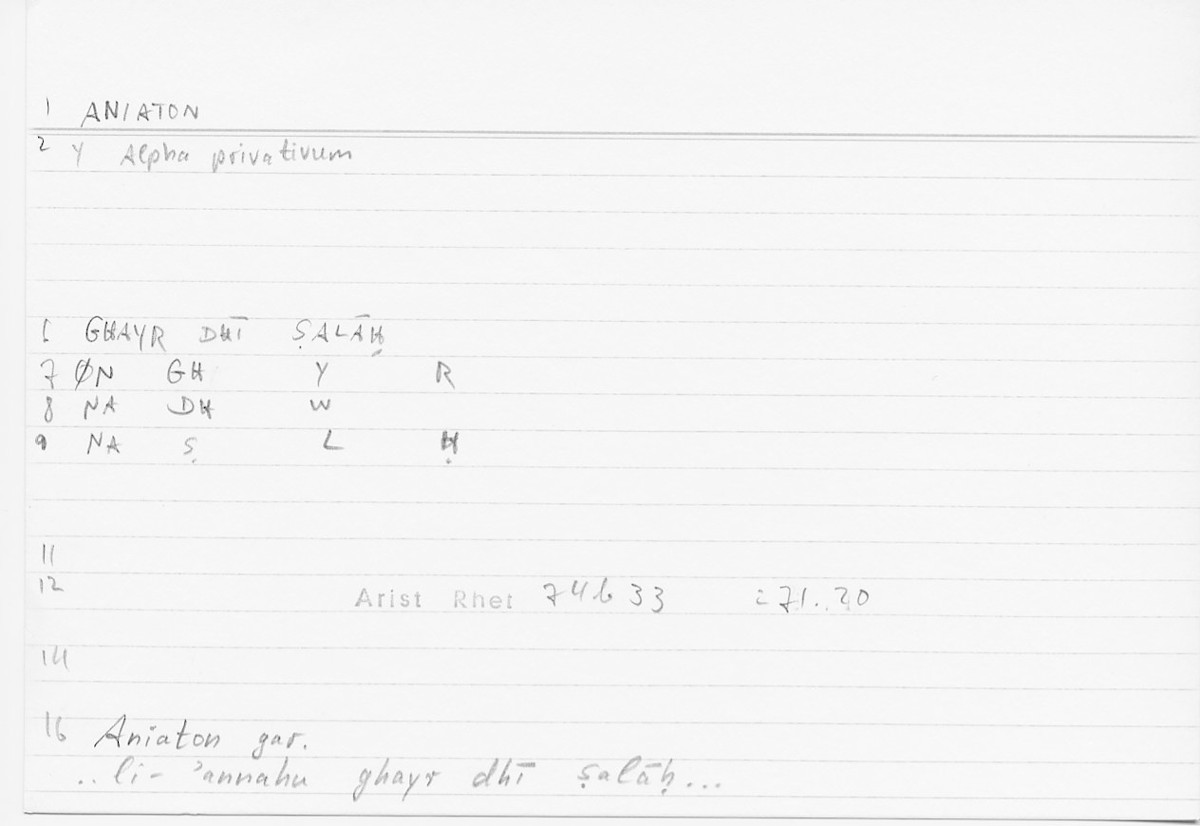 1 ANIATON
2 Y Alpha privativum
6 GHAYR DHĪ ṢALĀḤ
7 ØN GH Y R
8 NA DH W
9 NA Ṣ L Ḥ
11
12 Arist Rhet 74b33 :71..20
14
16 Aniaton gar.
..li-ʾannahu ghayr dhī ṣalāḥ...